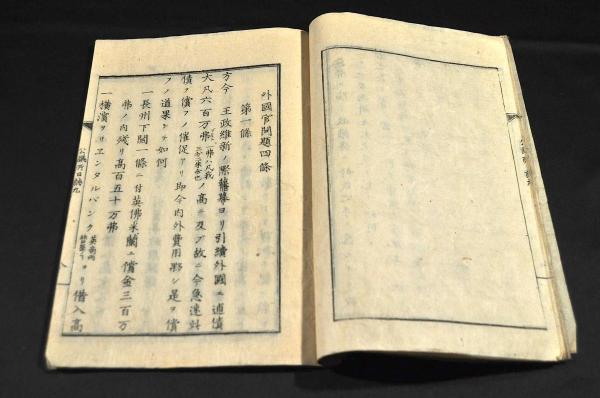 外國官問題四條
第一條
方今 王政維新ノ際舊幕ヨリ引續外國ニ逋債
大凡六百万弗一弗ハ凡我三分ニ當ルノ高ニ及ブ故ニ今急速此
債ヲ償フノ催促アリ即今内外費用夥シ是ヲ償
フノ道果シテ如何
一長州下關一條ニ付英佛米蘭ニ償金三百万
弗ノ内殘リ高百五十万弗
一横濱ヲリエンタルバンクヨリ借入高
公議所日誌九